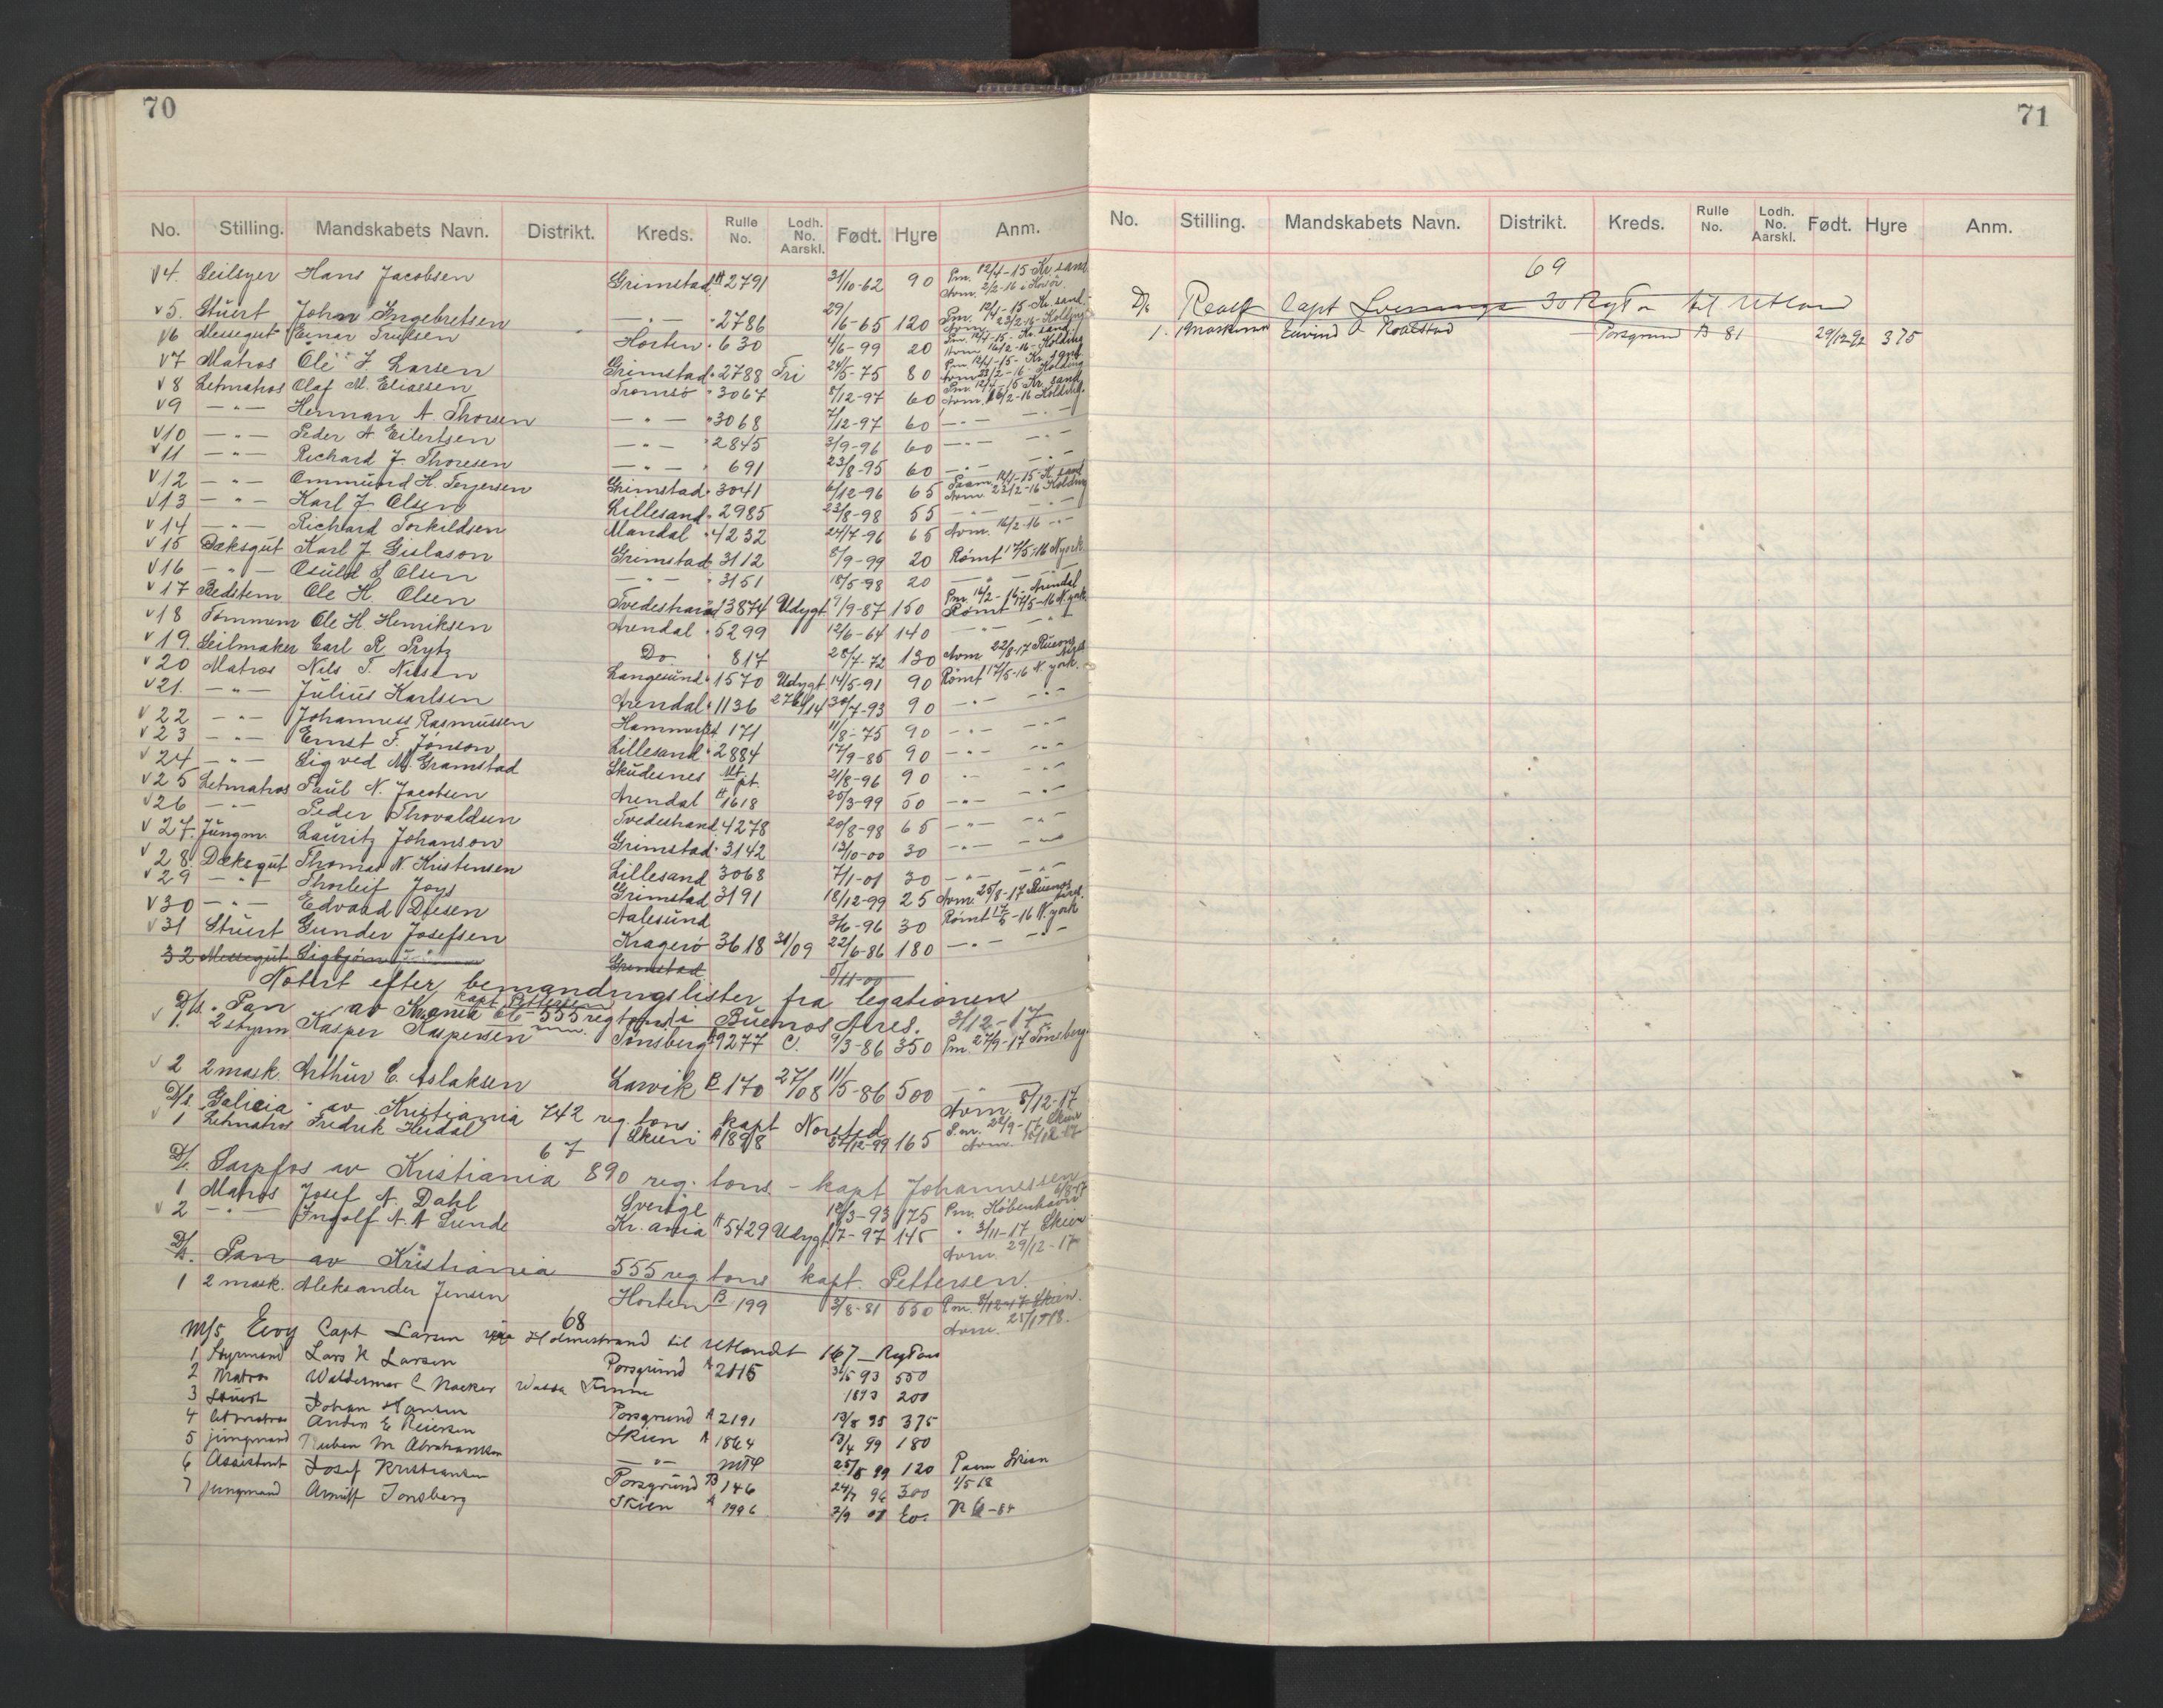 70
No. Stilling. Mandskabets Navn. Distrikt. Kreds. Rulle No. Lodh. No. Aarskl. Født. Hyre Anm.
4. Seilsyer Hans Jacobsen Grimstad A 2791 31/10-62 90 Pm. 12/4-15 Kr.sand
5. Stuert John Ingebretsen — " — " 2786 29/6-65 120 Pm. 12/4-15 Kr.sand. Avm. 23/2-16 Kolding
6 Messegut Einar Trulsen Horten " 630 4/6-99 20 Avm 16/2-16 - Kolding
7 Matros Ole J. Larsen Grimstad " 2788 Fri 24/5-75 80 Avm 23/2-16 - Kolding
8 Letmatros Olaf M. Eliassen Tromsø " 3067 8/12-97 60 Pm. 12/4-15 Kr.sand Avm. 16/2-16 Kolding.
9 — " — Herman A. Thorsen — " — " 3068 7/12-97 60 — " —
10 — " — Peder A Eilertsen — " — " 2845 3/9-96 60 — " —
11 — " — Richard J. Thoresen — " — " 691 23/8-95 60 — " —
12 — " — Ommund H. Terjersen Grimstad " 3041 6/12-96 65 Paam. 12/4-15 Kr.sand Avm. 23/2-16 Kolding
13 — " — Karl J. Olsen Lillesand " 2985 23/8-98 55 — " —
14 — " — Richard Torkildsen Mandal " 4232 24/7-96 65 Avm. 16/2-16 — " —
15 Dæksgut Karl J. Gislason Grimstad " 3112 8/9-99 20 Rømt 17/5-16 N.york
16 — " — Osuld S Olsen — " — " 3151 18/5-98 20 — " —
17 Bedstem Ole H. Olsen Tvedestrand 3874 Udygt. 9/9-87 150 Pm. 14/2-16 - Arendal Rømt 17/5-16 N.york
18 Tømmerm Ole H Henriksen Arendal " 5299 12/6-64 140 — " —
19. Seilmaker Carl R Prytz Do " 817 28/7-72 130 Avm 22/8-17 Buenos Aires
20 Matros Nils T. Nilsen Langesund " 1570 Udygt. 14/5-91 90 Rømt 17/5-16 N.york.
21. — " — Julius Karlsen Arendal " 1136 276/14 30/7-93 90 — " —
22 — " — Johanness Rasmussen Hammerfest 171 11/8-75 90 — " —
23 — " — Ernst F. Jönson Lillesand " 2884 17/9-85 90 — " —
24 — " — Sigved M. Gramstad Skudesnes Mt. pt. 21/8-96 90 — " —
25 Letmatros Paul N. Jacobsen Arendal A 1618 25/3-99 50 — " —
26 — " — Peder Thovaldsen Tvedestrand 4278 20/8-98 65 — " —
27. Jungm. Lauritz Johanson Grimstad " 3142 13/10-00 30 — " —
28. Dæksgut Thomas N. Kristensen Lillesand 3068 7/1-01 30 — " —
29 — " — Thorleif Joys Grimstad 3191 18/12-99 25 Avm. 25/8-17 Buenos Aires
30 — " — Edvard Diesen Aalesund 3/6-96 30 Rømt 17/5-16 N.york
31 Stuert Gunder Josefsen Kragerø 3618 31/09 22/6-86 180 — " —
32 Messegut Sigbjørn Grimstad 5/11-00
Notert efter bemandingslister fra legationen
D/s. Pan av Kr.ania kapt. Pettersen 555 reg tons i Buenos Aires. 3/12-17
1. 2 styrm. Kasper Kaspersen Tønsberg A 9277 C. 9/3-86 350 Pm. 27/9-17 Tönsberg.
2 2 mask. Arthur C. Aslaksen Larvik B 170 27/08 11/5-86 500 — " — Avm. 8/12-17
D/s. Galicia av Kristiania 742 reg. tons. kapt Norsted
1 Letmatros Fredrik Heidal Skien A 1898 27/12-99 165 P.m. 22/9-17 Skien
67
D/s. Sarpfos av Kristiania 890 reg. tons. - kapt Johannessen
1 Matros Josef A. Dahl Sverige 12/3-93 175 Pm. København 6/8-17
2 — " — Ingolf A. N Lunde Kr.ania A 5429 Udygt. 1/7-97 145 " 3/11-17 Skien Avm. 29/12-17
D/s. Pan av Kristiania 555 reg tons kapt. Pettersen.
1 2 mask. Aleksander Jensen Horten B 199 3/8-81 550 Pm. 8/12-17 Skien.
68
M/s Eivy Capt Larsen Holmestrand til Utlandet 167 — RegTons
1 Styrmand Lars N Larsen Porsgrund A 2115 31/5 93 550
2 Matros Waldemar C Wasa Finne 1893 200
3 Stuert Johan Hansen Porsgrund A 2191 13/8 95 375
4 Letmatros Anders E Reiersen Skien A 1864 13/4 99 180
5 jungmand Ruben M Abrahamsen — " — 25/8 99 120 Paam Skien
6 Assistent Josef Kristiansen Porsgrund B 146 24/7 96 300 1/5 18
7 jungmand Arnulf Tonsberg Skien A 1996 2/9 01 60. R 6-84
71
No. Stilling. Mandskabets Navn. Distrikt. Kreds. Rulle No. Lodh. No. Aarskl. Født. Hyre Anm.
69
D/s Realf Capt 30 RegT til Utland
1. Maskinm Eivind O Roalstad Porsgrund B 81 29/12 92 375